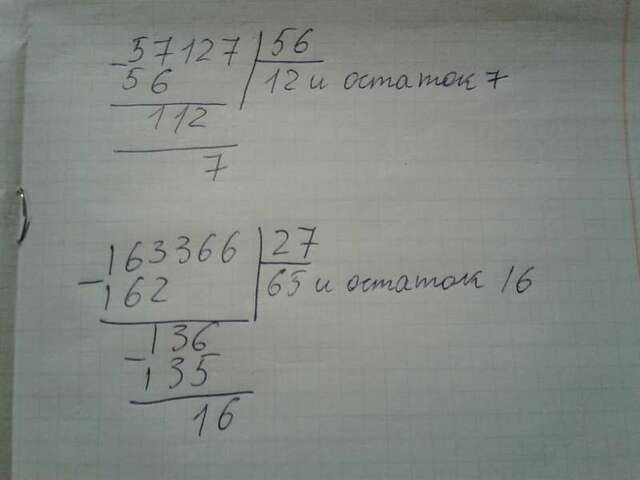 57127 56
-56 12 и остаток 7
112
7
163366 27
-162 65 и остаток 16
136
-135
16